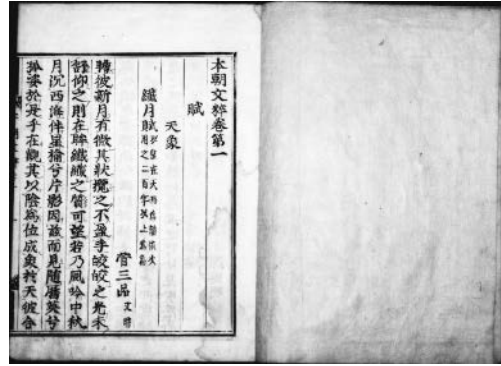 本朝文粹卷第一
賦
天象
纖月賦
菅三品
瞻彼新月有微其狀攬之不盈手皎皎之光未
舒仰之則在眸纖纖之質可望若乃風吟中秋
月沉西海伴星榆兮片影因茲而見隨蓂莢兮
於是乎在觀其以陰爲位成象於天彼合